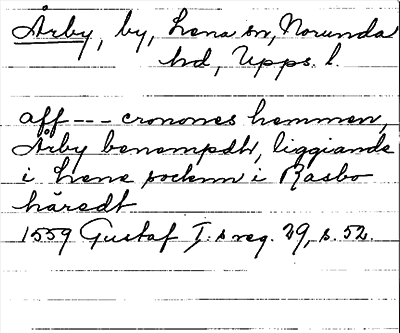 Årby, by, Lena sn, Norunda
hd, Upps. l.
aff --- cronones hemmen,
Årby benempdh, liggiande
i Lene socknn i Rasbo
häredt
1559 Gustaf I:s reg. 29, s. 52.